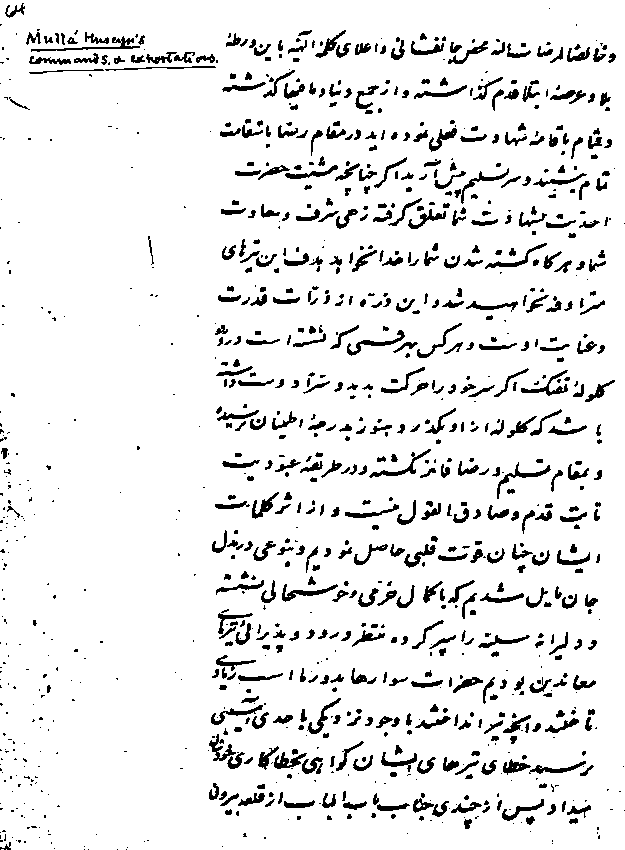 64
Mullá Husayn's
commands & exhortations.
و خالصاً لمرضات الله محض جانفشانی و اعلای کلمة الهیه باین ورطهٔ
بلا و عرصهٔ ابتلا قدم گذاشته و از جمیع دنیا و مافیها گذشته
و قیام باقامهٔ شهادت فعلی نموده اید در مقام رضا باستقامت
تمام بنشینید و سر تسلیم پیش آرید اگر چنانچه مشیت حضرت
احدیت بشهادت شما تعلق گرفته زهی شرف و سعادت
شما و هر گاه کشته شدن شما را خدا نخواهد هدف این تیرهای
مترادفه نخواهید شد و این ذره از ذرات قدرت
و عنایت اوست و هر کس بهر قسمی که نشسته است در روی
گلولهٔ تفنگ اگر سر خود را حرکت بدهد و سرّاً دوست داشته
باشد که گلوله از او بگذرد هنوز بدرجهٔ اطمینان نرسیده
و بمقام تسلیم و رضا فائز نگشته و در طریقهٔ عبودیت
ثابت قدم و صادق القول نیست و از اثر کلمات
ایشان چنان قوت قلبی حاصل نمودیم و بنوعی در بذل
جان مایل شدیم که با کمال خرمی و خوشحالی نشسته
و دلیرانه سینه را سپر کرده منتظر ورود و پذیرائی تیرهای
معاندین بودیم حضرات سوارها بدور ما اسب زیادی
تاختند و آنچه تیر انداختند با وجود نزدیکی باحدی آسیبی
نرسید خطای تیرهای ایشان گواهی بخطا کاری خودشان
میداد پس از چندی جناب باب الباب از قلعه بیرون